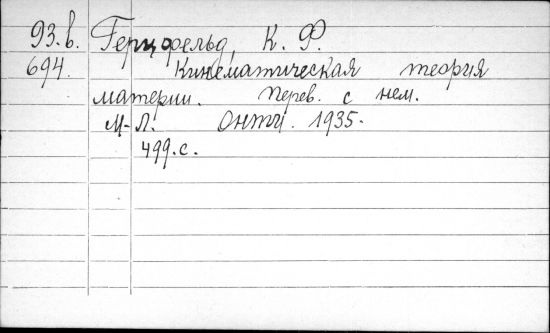 93.в. Герцфельд, К. Ф.
694. Кинематическая теория
материи. Перев. с нем.
М-Л. Онти. 1935.
499.с.